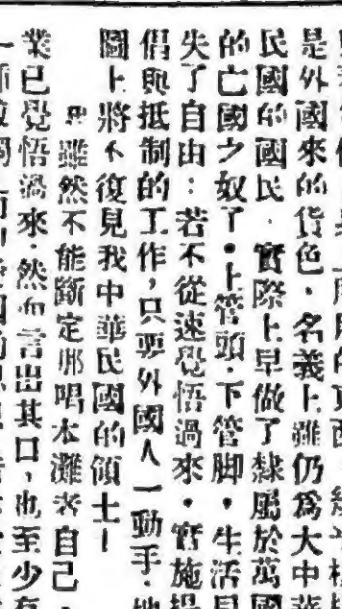 是外國來的貨色．名義上雖仍爲大中華
民國的國民．實際上早做了隸屬於萬國
的亡國之奴了．上管頭．下管脚．生活早
失了自由：若不從速覺悟過來．實施提
倡與抵制的工作，只要外國人一動手．地
圖上將不復見我中華民國的領土！
雖然不能斷定那唱本灘者自己．
業已覺悟過來．然而言出其口，也至少有